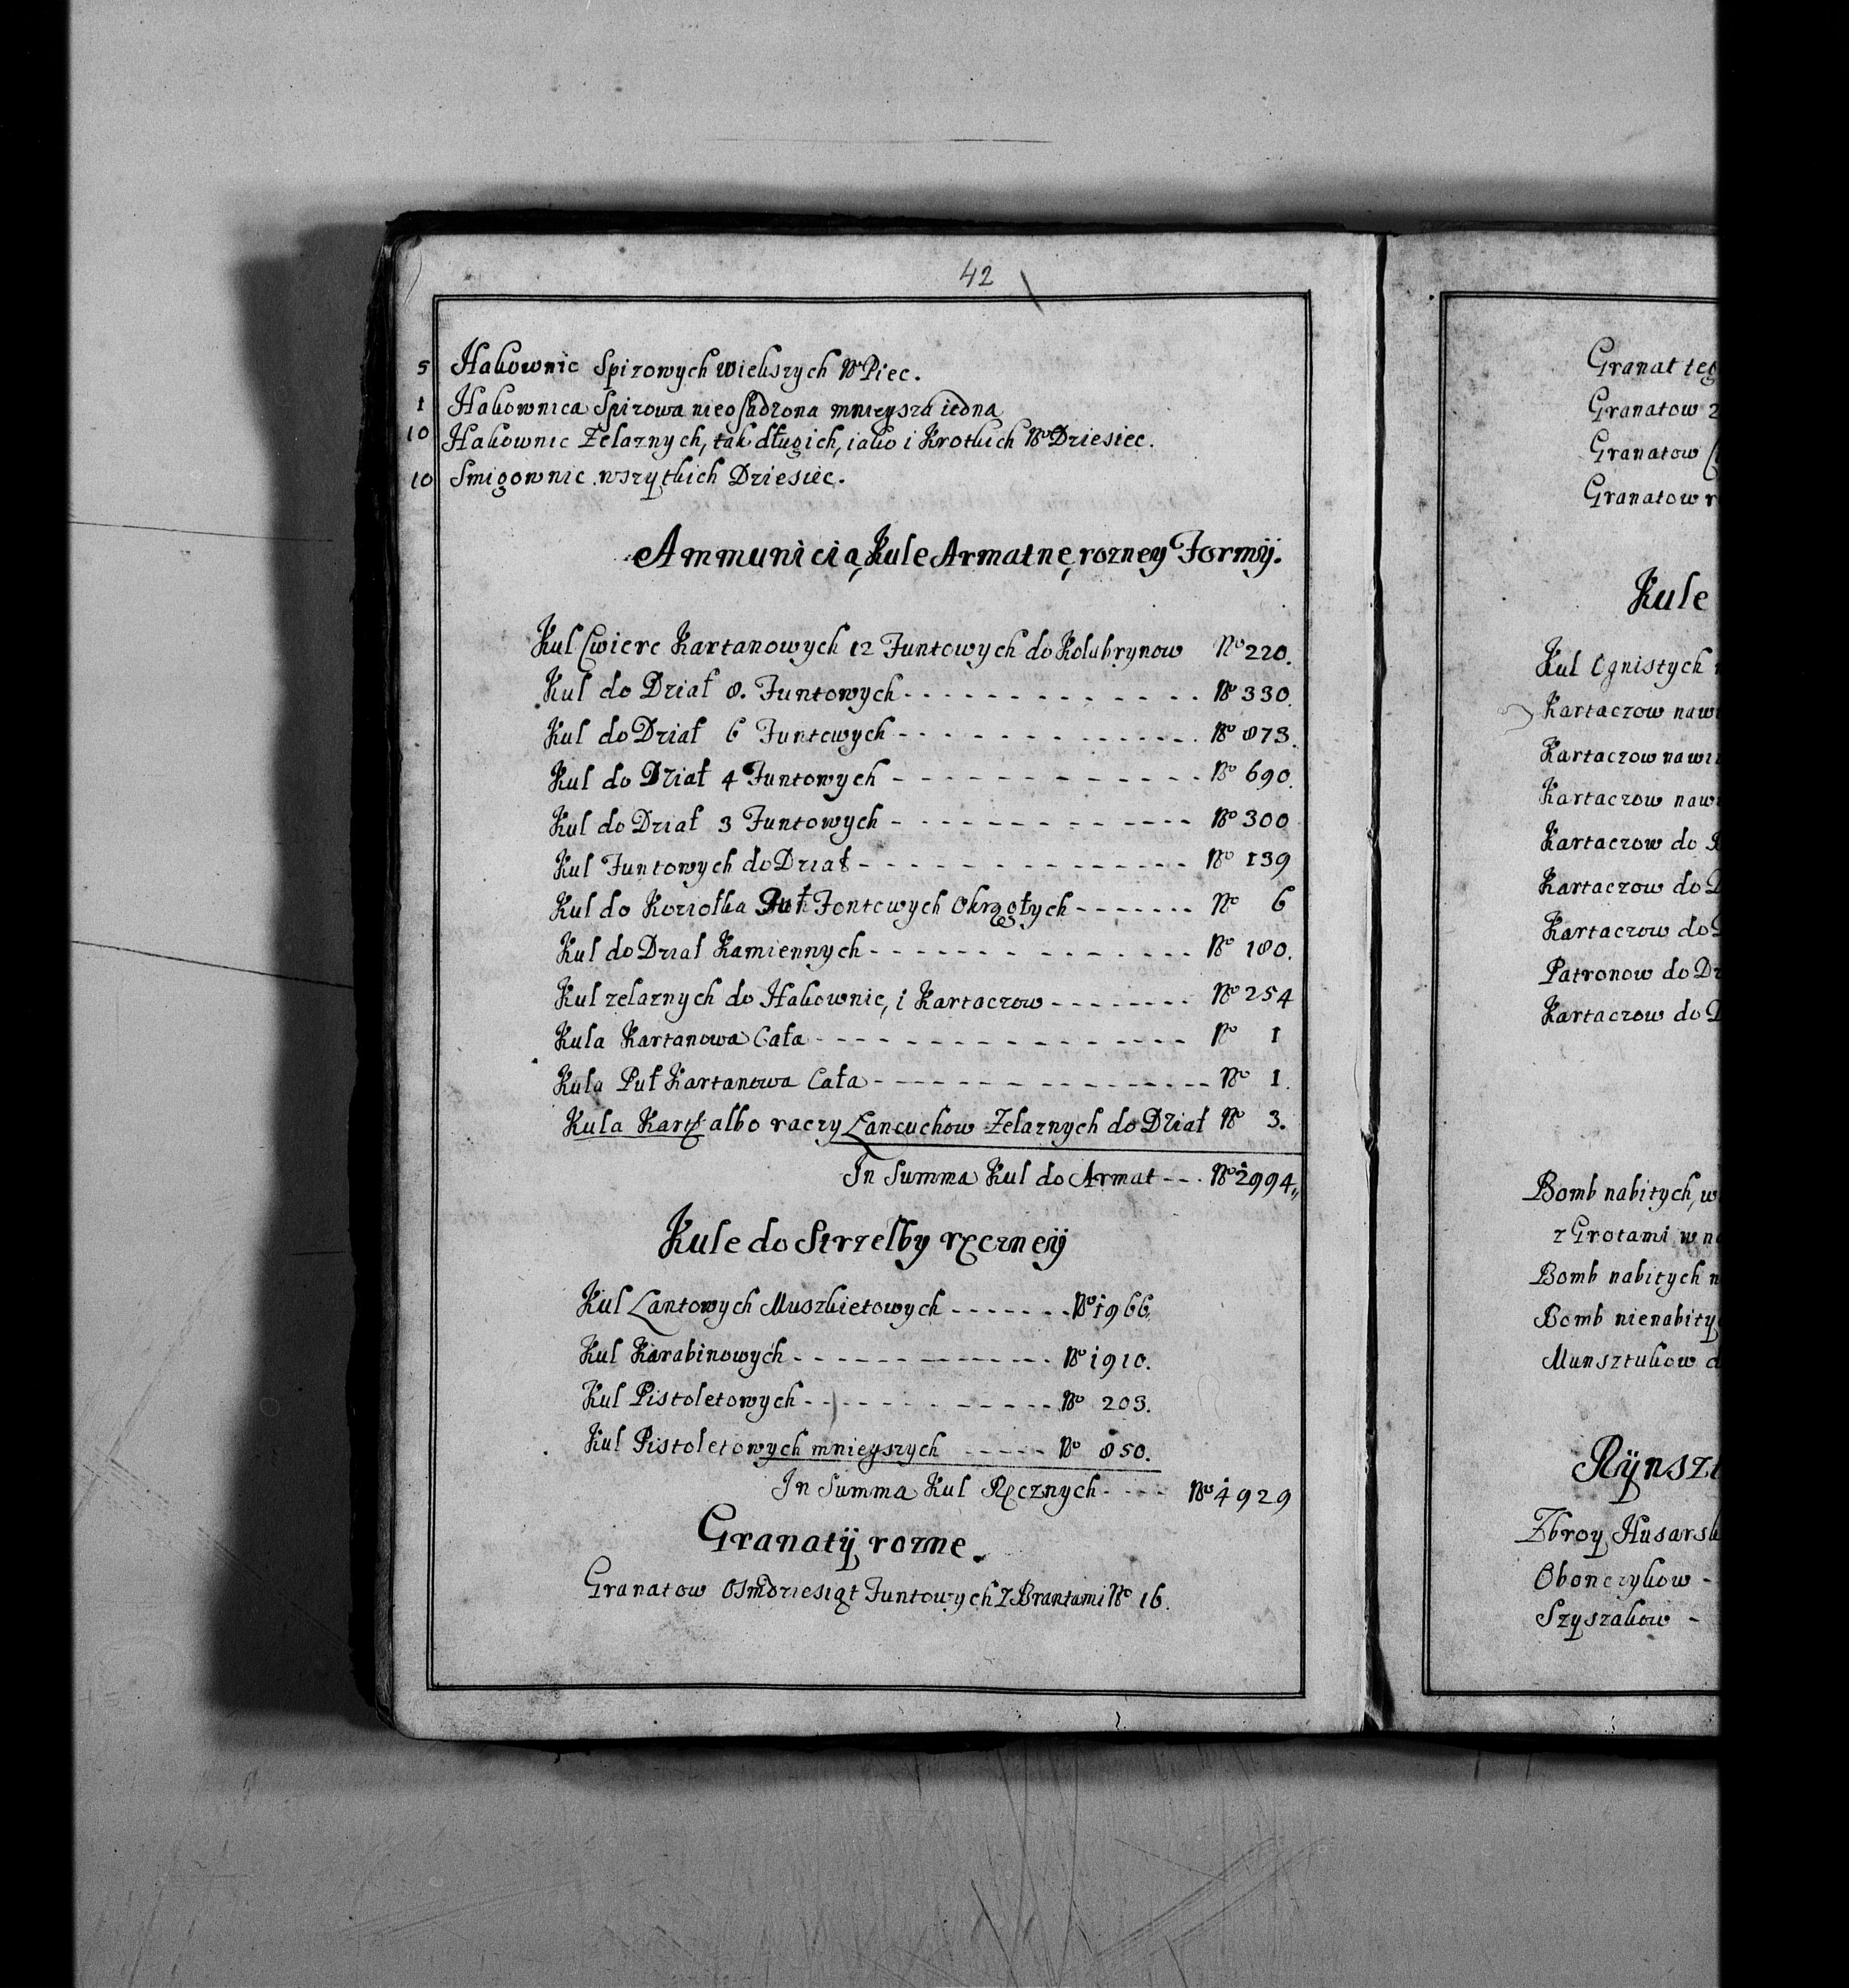 42
5 Hakownic Spizowych Wiekszych No Piec.
1 Hakownica Spizowa nieosadzona mnieysza iedna
10 Hakownic Zelaznych, tak długich, iako i Krotkich No Dziesiec.
10 Smigownic wszytkich Dziesiec.
Ammunicia, Kule Armatne, rozney Formÿ.
Kul Cwierc Kartanowych 12 Funtowych do Kolubrynow No 220.
Kul do Dział 8. Funtowych - - - No 330.
Kul do Dział 6 Funtowych - - - No 873.
Kul do Dział 4 Funtowych - - - No 690.
Kul do Dział 3 Funtowych - - - No 300
Kul Funtowych do Dział - - - No 139
Kul do Koziołka Puł Fontowych Okrągłych - - - No 6
Kul do Dział Kamiennych - - - No 180.
Kul zelaznych do Hakownic, i Kartaczow - - - No 254
Kula Kartanowa Cała - - - No 1
Kula Puł Kartanowa Cała - - - No 1.
Kula albo raczy Łancuchow Zelaznych do Dział No 3.
In Summa Kul do Armat - - - No 2994
Kule do Strzelby ręczneÿ
Kul Łantowych Muszkietowych - - - No 1966.
Kul Karabinowych - - - No 1910.
Kul Pistoletowych - - - No 203.
Kul Pistoletowych mnieyszych - - - No 850.
In Summa Kul Ręcznych - - - No 4929
Granatÿ rozne.
Granatow Osmdziesiąt Funtowych Z Brantami No 16.
Granat
Granatow 2
Granatow
Granatow
Kule
Kul Ognistych
Kartaczow
Kartaczow
Kartaczow
Kartaczow do
Kartaczow do
Kartaczow do
Patronow do
Kartaczow do
Bomb nabitych, w
z Grotami w
Bomb nabitych
Bomb
Munsztukow
Zbroy
Obonczykow -
Szyszakow -